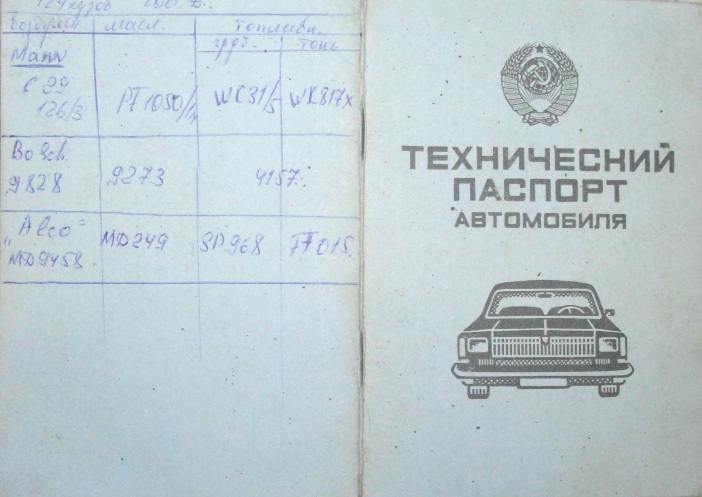 124 кузов 200 D.
воздушн масл. топливн.
груб. тонк
Mann
C 29
126/3 PF1050/1x WK31/5 WK817x
Bosch
9828 9273 4157
"Alco"
MD9458 MD249 SP968 FF015
ТЕХНИЧЕСКИЙ
ПАСПОРТ
АВТОМОБИЛЯ